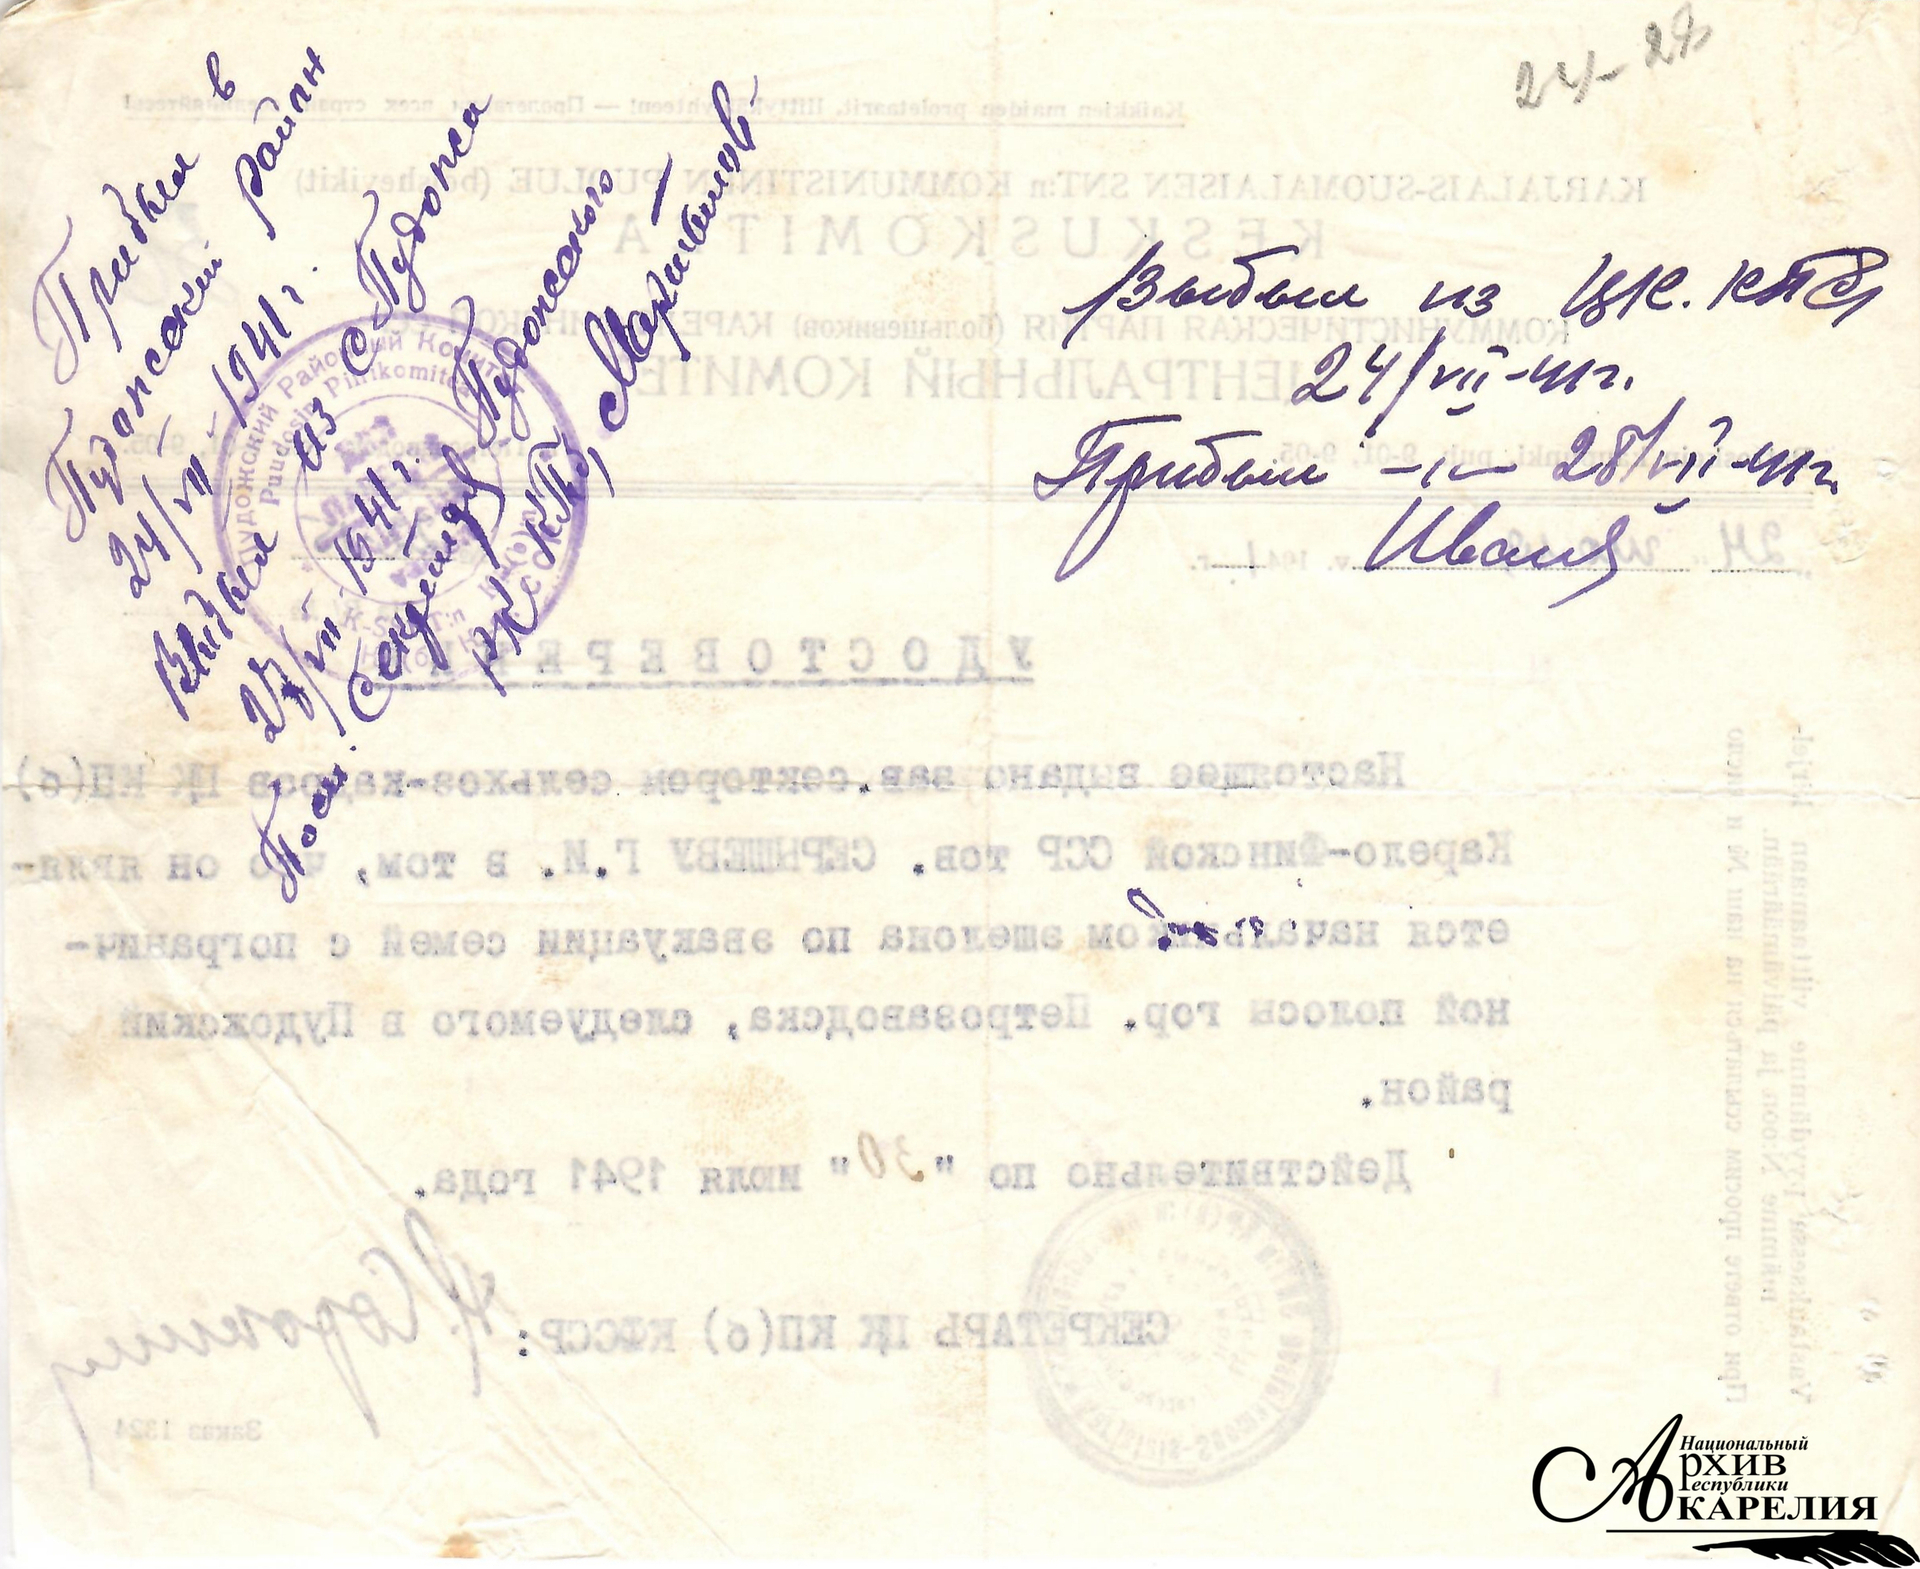 24-28
Прибыл в
Пудожский район
24/VII 1941 г.
Выбыл из г. Пудожа
27/VII 1941 г.
Пом. Секретаря Пудожского
РК КП(б)
Выбыл из ЦК. КП(б)
24/VII-41 г.
Прибыл -"- 28/VII-41 г.
Пудожский Районный Комитет
Kaikkien maiden proletaarit, liittykää yhteen! — Пролетарии всех стран, соединяйтесь!
KARJALAIS-SUOMALAISEN SNT:n KOMMUNISTINEN PUOLUE (bolshevikit)
KESKUSKOMITEA
КОММУНИСТИЧЕСКАЯ ПАРТИЯ (большевиков) КАРЕЛО-ФИНСКОЙ ССР
ЦЕНТРАЛЬНЫЙ КОМИТЕТ
puh. 9-01, 9-05
24 июля 1941 г.
УДОСТОВЕРЕНИЕ
Настоящее выдано зав.сектором сельхоз-кадров ЦК КП(б)
Карело-Финской ССР тов. СЕРЫШЕВУ Г.И. в том, что он явля-
ется начальником эшелона по эвакуации семей с погранич-
ной полосы гор. Петрозаводска, следуемого в Пудожский
район.
Действительно по "30" июля 1941 года.
СЕКРЕТАРЬ ЦК КП(б) КФССР:
Заказ 1324
При ответе просим ссылаться на наш № и число
Национальный
Архив
Республики
Карелия